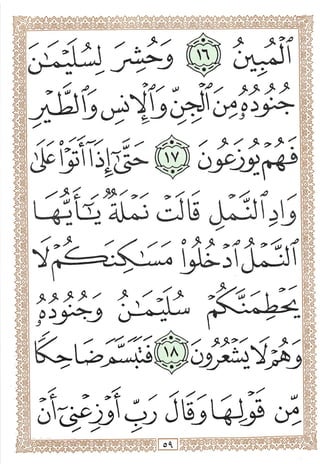 ٱلْمُبِينُ ١٦ وَحُشِرَ لِسُلَيْمَٰنَ
جُنُودُهُۥ مِنَ ٱلْجِنِّ وَٱلْإِنسِ وَٱلطَّيْرِ
فَهُمْ يُوزَعُونَ ١٧ حَتَّىٰٓ إِذَآ أَتَوْا۟ عَلَىٰ
وَادِ ٱلنَّمْلِ قَالَتْ نَمْلَةٌ يَٰٓأَيُّهَا
ٱلنَّمْلُ ٱدْخُلُوا۟ مَسَٰكِنَكُمْ لَا
يَحْطِمَنَّكُمْ سُلَيْمَٰنُ وَجُنُودُهُۥ
وَهُمْ لَا يَشْعُرُونَ ١٨ فَتَبَسَّمَ ضَاحِكًا
مِّن قَوْلِهَا وَقَالَ رَبِّ أَوْزِعْنِىٓ أَنْ
٥٩